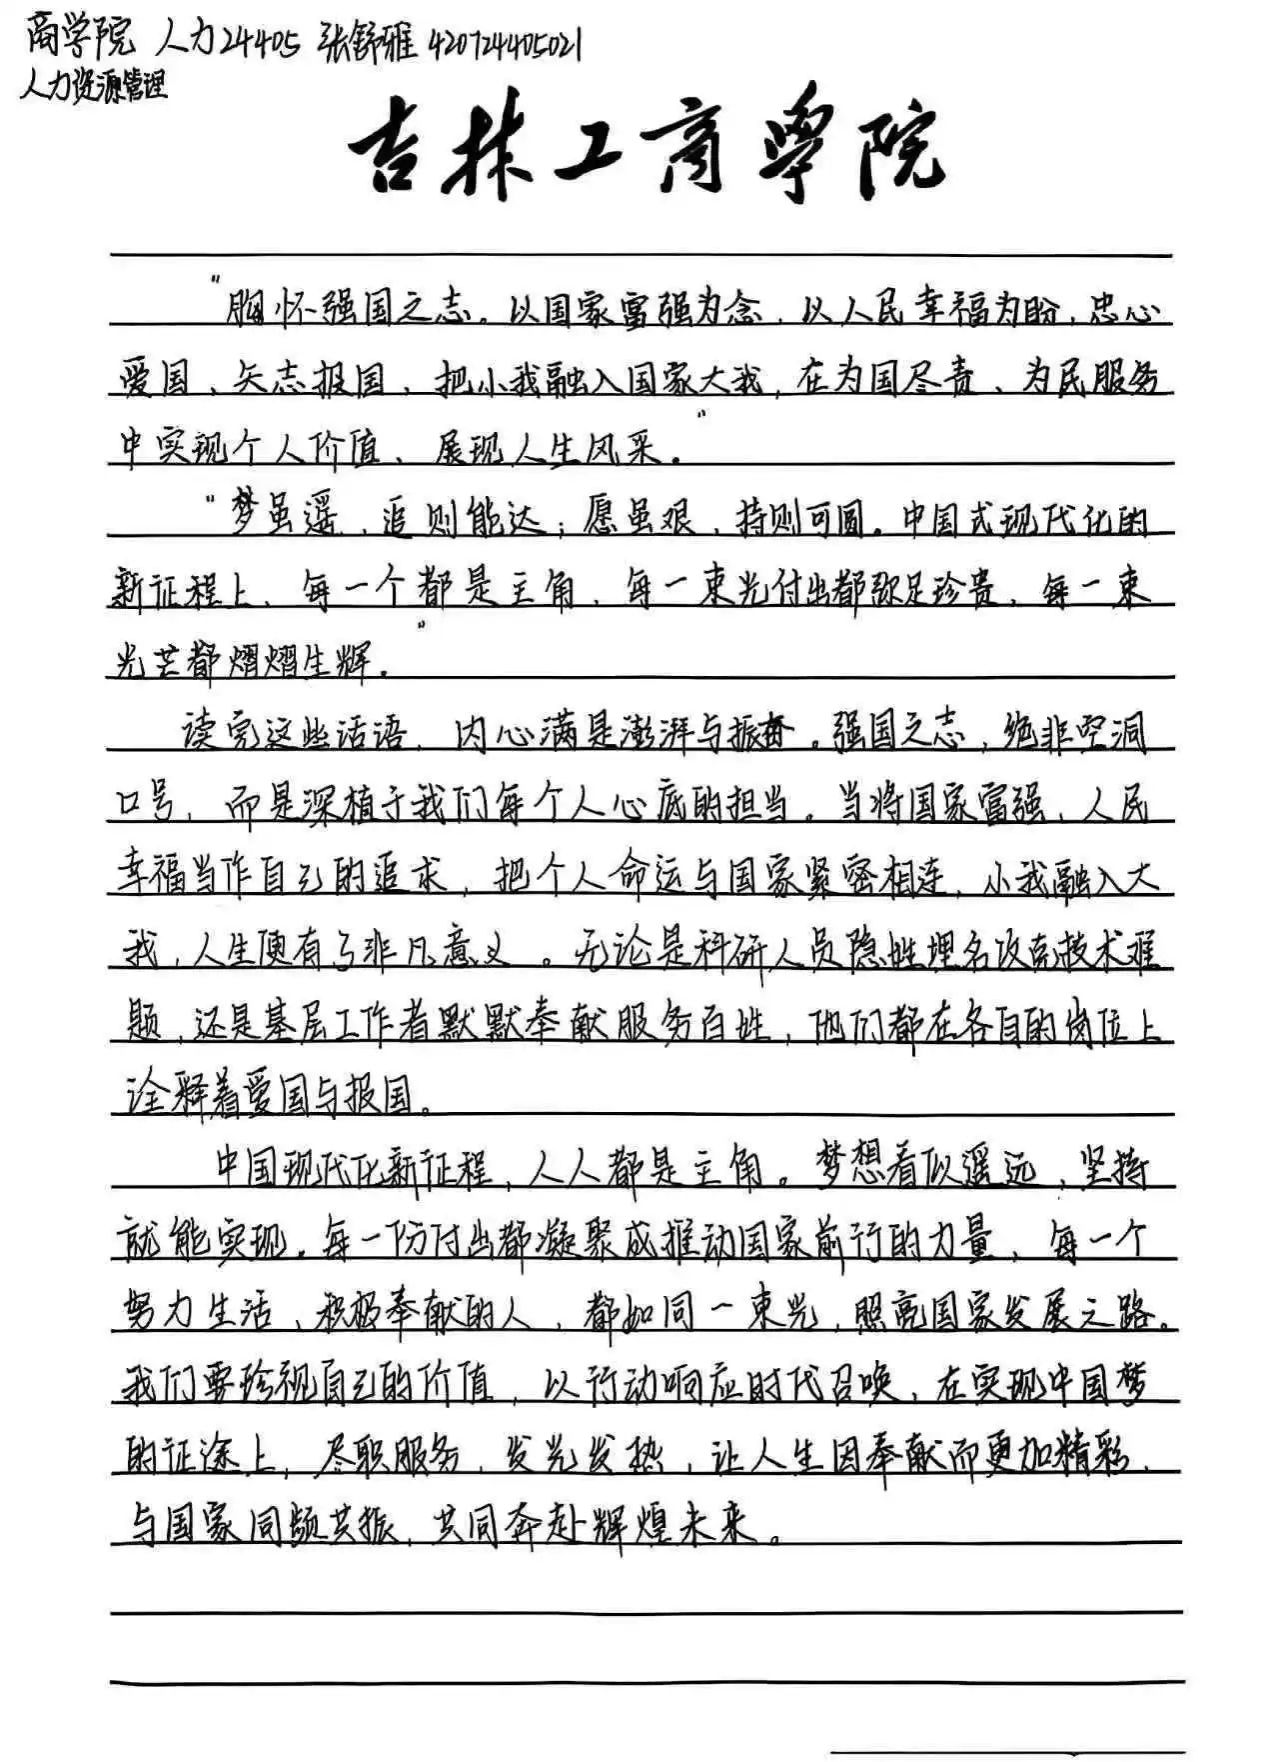 商学院 人力24405 张舒雅 420724405021
人力资源管理
吉林工商学院
“胸怀强国之志。以国家富强为念，以人民幸福为盼，忠心
爱国、矢志报国，把小我融入国家大我，在为国尽责、为民服务
中实现个人价值、展现人生风采。”
“梦虽遥，追则能达；愿虽艰，持则可圆。中国式现代化的
新征程上，每一个都是主角，每一束光付出都弥足珍贵，每一束
光芒都熠熠生辉。”
读完这些话语，内心满是澎湃与振奋。强国之志，绝非空洞
口号，而是深植于我们每个人心底的担当。当将国家富强、人民
幸福当作自己的追求，把个人命运与国家紧密相连，小我融入大
我，人生便有了非凡意义。无论是科研人员隐姓埋名攻克技术难
题，还是基层工作者默默奉献服务百姓，他们都在各自的岗位上
诠释着爱国与报国。
中国现代化新征程，人人都是主角。梦想看似遥远，坚持
就能实现。每一份付出都凝聚成推动国家前行的力量，每一个
努力生活、积极奉献的人，都如同一束光，照亮国家发展之路。
我们要珍视自己的价值，以行动响应时代召唤，在实现中国梦
的征途上，尽职服务，发光发热，让人生因奉献而更加精彩，
与国家同频共振，共同奔赴辉煌未来。